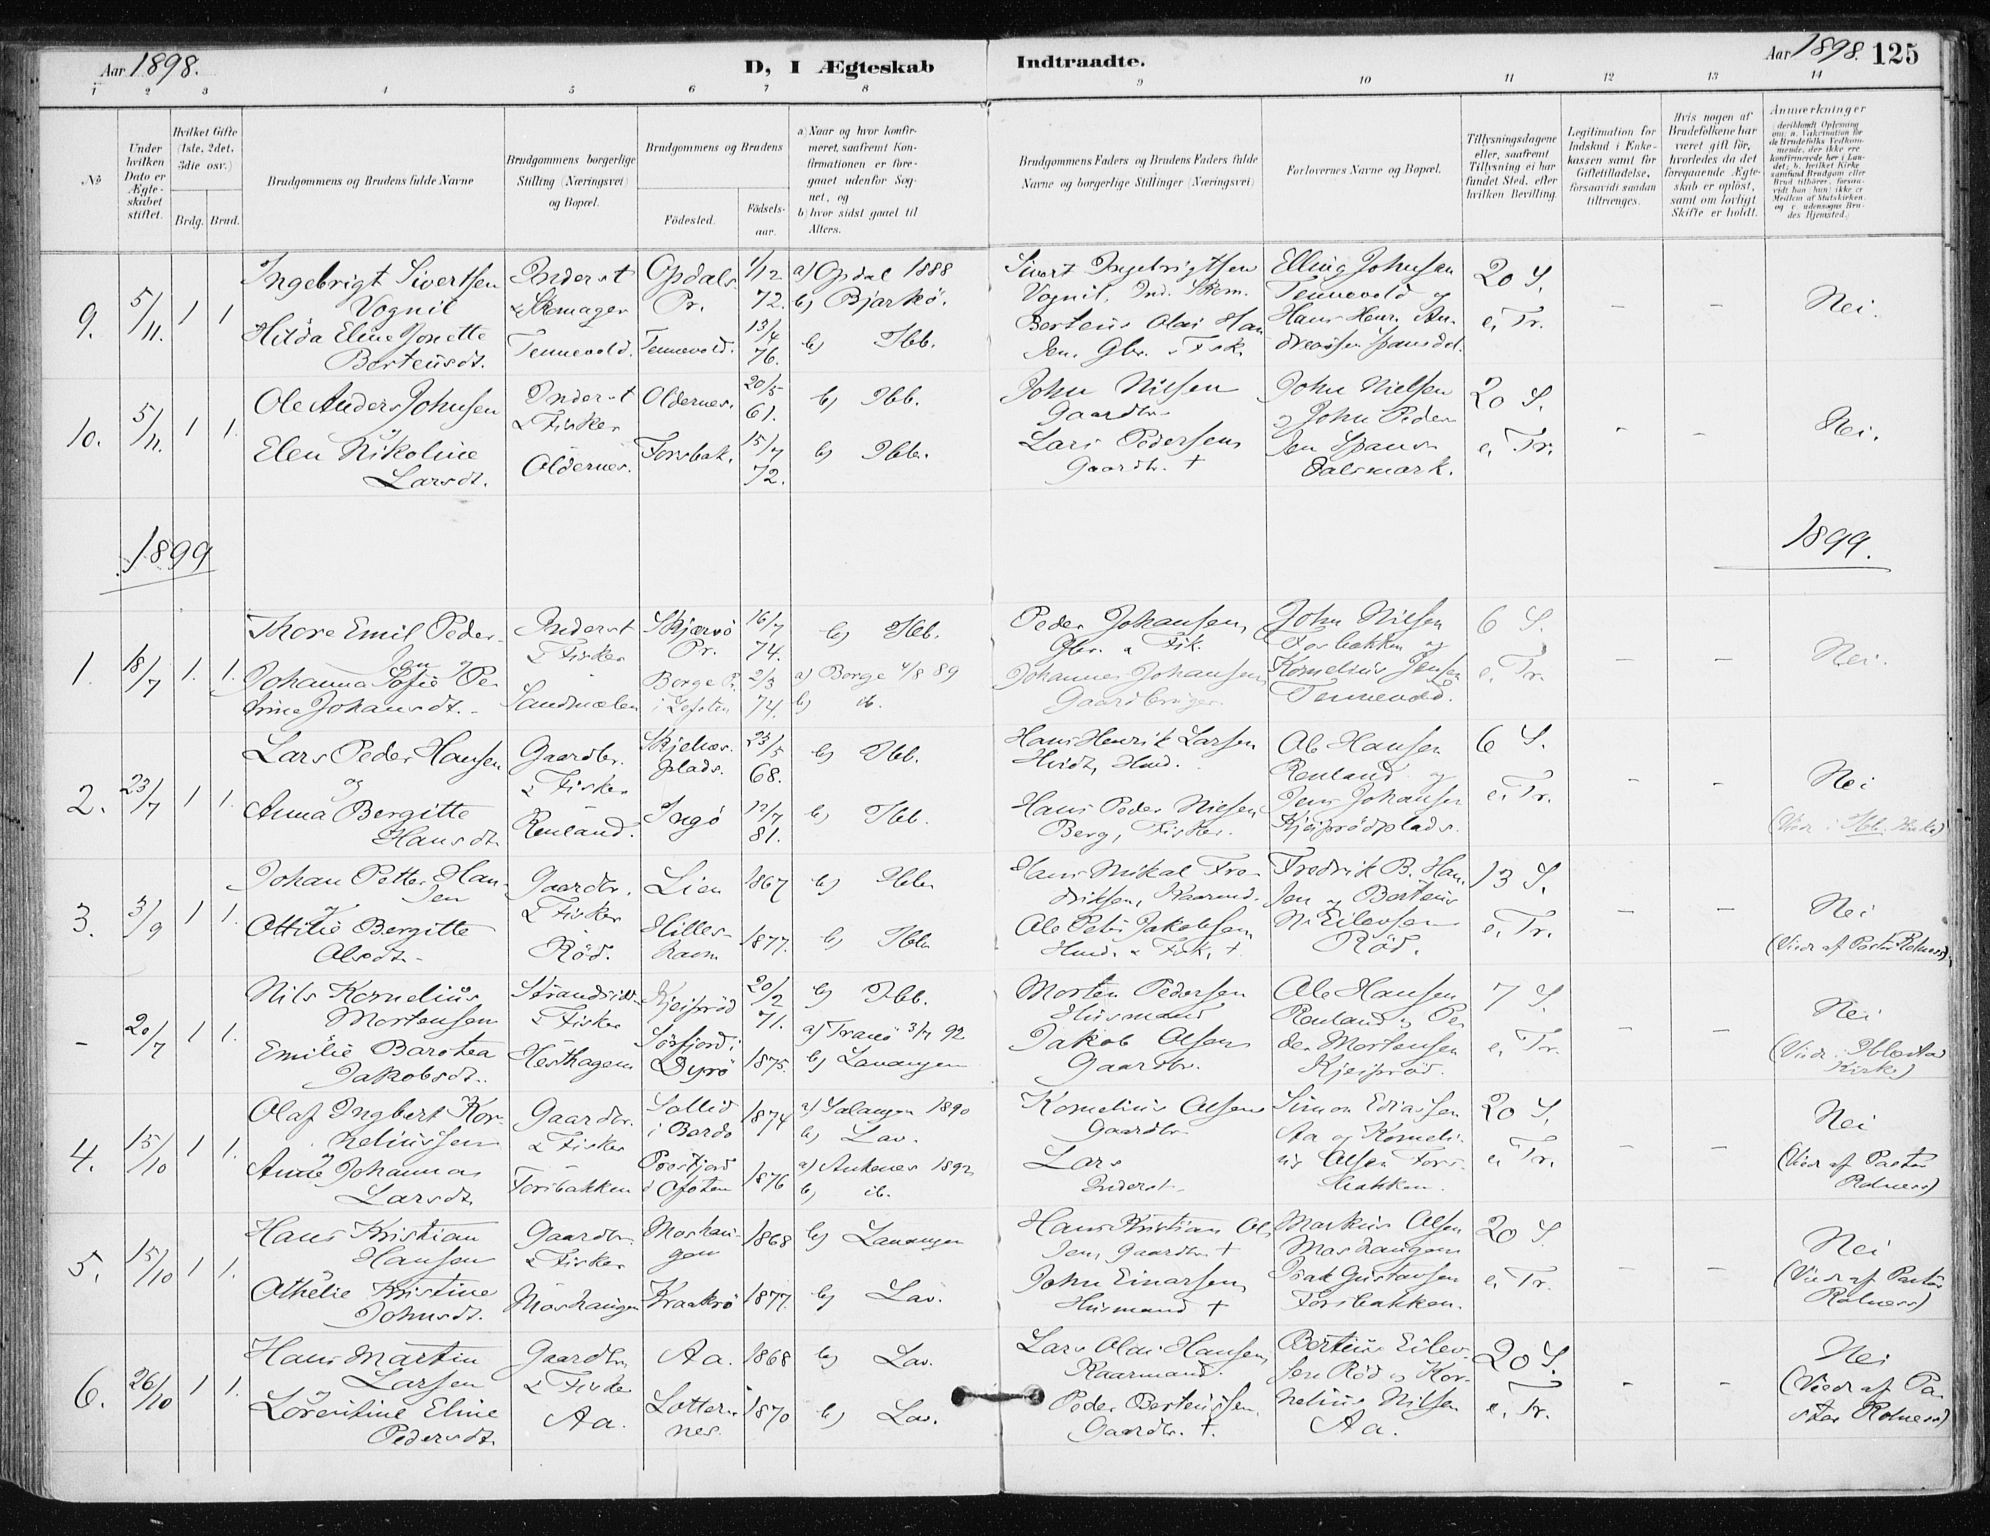 Aar 1898.
D, I Ægteskab Indtraadte.
Aar 1898. 125
1 2 3 4 5 6 7 8 9 10 11 12 13 14
No
Under hvilken Dato er Ægteskabet stiftet.
Hvilket Gifte (1ste, 2det, 3die osv.)
Brdg. Brud.
Brudgommens og Brudens fulde Navne
Brudgommens borgerlige Stilling (Næringsvei) og Bopæl.
Brudgommens og Brudens
Fødested.
Fødsels-aar.
a) Naar og hvor konfirmeret, saafremt Konfirmationen er foregaaet udenfor Sognet, og
b) hvor sidst gaaet til Alters.
Brudgommens Faders og Brudens Faders fulde Navne og borgerlige Stillinger (Næringsvei)
Forlovernes Navne og Bopæl.
Tillysningsdagene eller, saafremt Tillysning ei har fundet Sted, efter hvilken Bevilling.
Legitimation for Indskud i Enkekassen samt for Giftetilladelse, forsaavidt saadan tiltrænges.
Hvis nogen af Brudefolkene har været gift før, hvorledes da det foregaaende Ægteskab er opløst, samt om lovligt Skifte er holdt.
Anmærkninger
9. 5/11. 1 1
Ingebrigt Sivertsen
Vognil
Hilda Eline Jonette
Berteusdt.
Inderst
& Skomager
Tennevold.
Opdals
Pr.
Tennevold.
1/12. 72.
13/4 76.
a) Opdal 1888
b) Bjarkö.
b) Ibb.
Sivert Ingebrigtsen
Vognil, Ind. Skom.
Berteus Olai Han
sen, Gbr. & Fisk.
Elling Johnsen
Tennevold og
Hans Henr. An-
dreassen Spansdal.
20 S.
e. Tr.
- -
Nei.
10. 5/11. 1 1.
Ole Anders Johnsen
og
Elen Nikoline
Larsdt.
Inderst
& Fisker
Oldernes.
Oldernes.
Forsbak.
20/5 61.
15/7 72.
b) Ibb.
b) Ibb.
John Nilsen
Gaardbr.
Lars Pedersen
Gaardbr. +
John Nielsen
og John Peder
sen Spans-
dalsmark.
20 S.
e. Tr.
- -
Nei.
1899
1899.
1. 18/7 1. 1.
Thore Emil Peder-
sen og
Johanna Sofie Pe
trine Johansdt.
Inderst
& Fisker
Sandmælen
Skjærvö
Pr.
Borge Pr.
i Lofoten
16/7 74.
2/3 74.
b) Ibb.
a) Borge 4/8 89
b) ib.
Peder Johansen,
Gbr. & Fisk.
Johannes Johansen
Gaardbruger
John Nilsen
Forsbakken og
Kornelius Jensen
Tennevold.
6 S.
e. Tr.
- -
Nei.
2. 23/7 1 1.
Lars Peder Hansen
og
Anna Bergitte
Hansdt.
Gaardbr.
& Fisker
Renland.
plads.
Ingö
23/5 68.
12/7 81.
b) Ibb.
b) Ibb.
Hans Henrik Larsen
Hans Peder Nielsen
Berg, Fisker.
Ole Hansen
Renland og
Jens Johansen
Kjeiprödplads.
6 S.
e. Tr.
- -
Nei
(Viede i Ibb. Kirke)
3. 3/9 1 1.
Johan Petter Han-
sen og
Ottilie Bergitte
Olsdt.
Gaardbr.
& Fisker
Röd.
Lien
Hilles-
havn
1867
1877.
b) Ibb.
b) Ibb.
Hans Mikal Fre-
driksen, Kaarmd.
Ole Peter Jakobsen
Husd. & Fisk. +
Fredrik B. Han
sen og Berteus
N. Eilevsen
Röd.
13 S.
e. Tr.
- -
Nei
(Viede af Pastor Rolness).
- 20/7 1 1.
Nils Kornelius
Mortensen
Emilie Barotea
Jakobsdt.
Strandsidd.
& Fisker
Hesthagen
Kjeipröd
Sörfjord i
Dyrö
20/2 71.
1875.
b) Ibb.
a) Tranö 3/7 92
b) Lavangen
Morten Pedersen
Husmand
Jakob Olsen
Gaardbr.
Ole Hansen
Renland og Pe
der Mortensen
Kjeipröd.
7 S.
e. Tr.
- -
Nei
(Viede i Ibbestad
Kirke)
4. 15/10 1 1.
Olaf Ingbert Kor-
neliussen
og
Anne Johannas
Larsdt.
Gaardbr.
& Fisker
Forsbakken
Sollid
i Bardo
i Ofoten
1874
1876
a) Salangen 1890
b) Lav.
a) Ankenes 1892
b) ib.
Kornelius Olsen
Gaardbr.
Lars
Inderst
Simon Ediassen
Aa og Korneli-
us Olsen Fors-
bakken.
20 S.
e. Tr.
- -
Nei
(Viede af Pastor
Rolness)
5. 15/10 1 1.
Hans Kristian
Hansen
og
Athelie Kristine
Johnsdt.
Gaardbr.
& Fisker
Moshaugen
Moshau-
gen
Kraakrö
1868
1877.
b) Lavangen
b) Lav.
Hans Kristian Ol
sen, Gaardbr. +
John Einarsen,
Husmand +
Markus Olsen
Moshaugen
Isak Gustavsen
Forsbakken.
20 S
e. Tr.
- -
Nei
(Viede af Pastor
Rolness)
6. 26/10 1 1.
Hans Martin
Larsen
og
Lorentine Eline
Pedersdt.
Gaardbr.
& Fisker
Aa.
Aa.
Lotter-
nes.
1868
1870
b) Lav.
b) Lav.
Lars Olai Hansen,
Kaarmand.
Peder Berteussen,
Gaardbr. +.
Berteus Eilev-
sen Röd og Kor-
nelius Nilsen
Aa.
20 S.
e. Tr.
- -
Nei
(Viede af Pa-
stor Rolness)